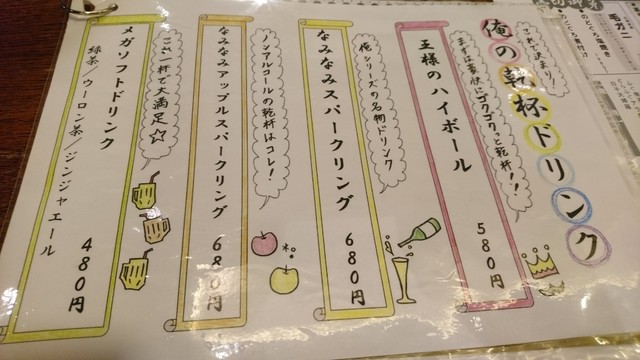 俺の乾杯ドリンク
これで決まり!
まずは豪快にゴクゴクッと乾杯!!
王様のハイボール
580円
俺シリーズの名物ドリンク
なみなみスパークリング
680円
ノンアルコールの乾杯はコレ!
なみなみアップルスパークリング
680円
これ一杯で大満足☆
メガソフトドリンク
緑茶/ウーロン茶/ジンジャエール
480円
毛ガニ